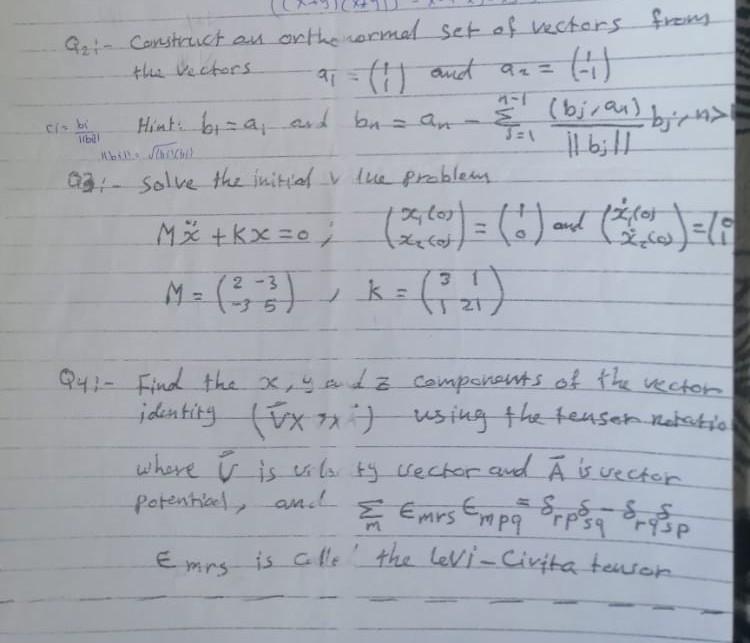 Q2:- Construct an orthonormal set of vectors from
the vectors a₁ = (1 1) and a₂ = (1 -1)
ci = bi / ||bi||
Hint: b₁ = a₁ and bn = an - Σ_{j=1}^{n-1} (bj, an) / ||bj|| bj, n>
||bi|| = √(bi)(bi)
Q3:- Solve the initial v lue problem
Mẍ + Kx = 0 ; (x₁(0) x₂(0)) = (1 0) and (ẋ₁(0) ẋ₂(0)) = (0 1
M = (2 -3 -3 5) , k = (3 1 1 21)
Q4:- Find the x, y and z components of the vector
identity using the tensor notatio
where V̄ is vector and Ā is vector
potential, and Σ_m ϵmrs ϵmpq = δrp δsq - δrq δsp
ϵmrs is the levi-Civita tensor